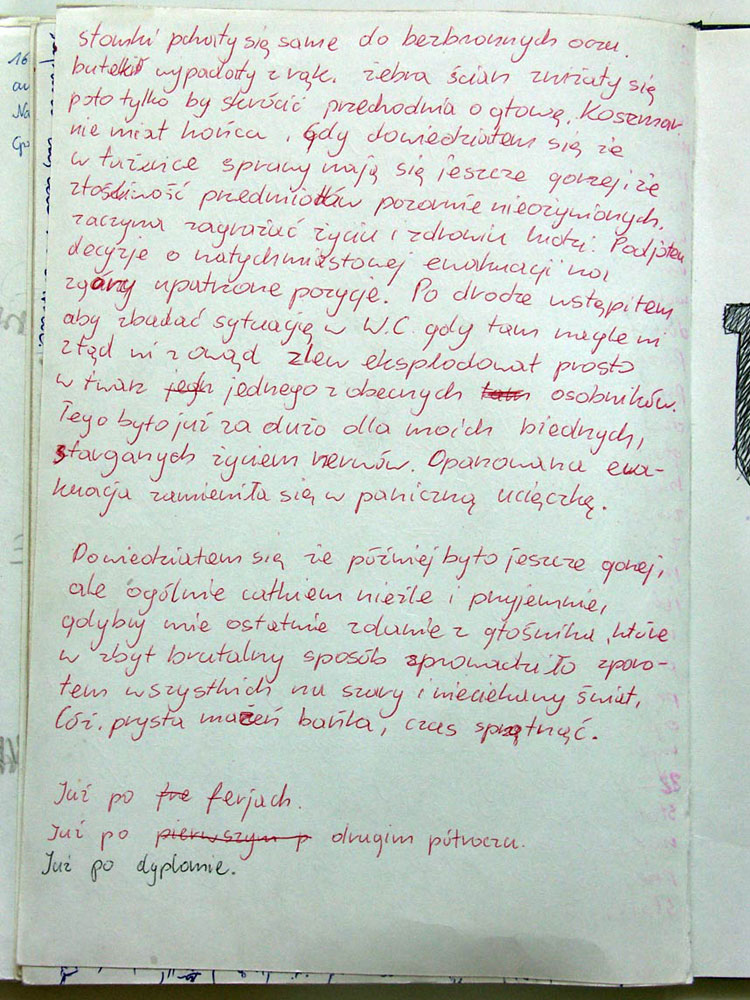 słomki pchały się same do bezbronnych oczu.
butelki wypadały z rąk. żebra ścian zwężały się
poto tylko by skrócić przechodnia o głowę. Koszmar
nie miał końca. Gdy dowiedziałem się że
w łazience sprawy mają się jeszcze gorzej i że
złośliwość przedmiotów pozornie nieożywionych,
zaczyna zagrażać życiu i zdrowiu ludzi. Podjąłem
decyzje o natychmiastowej ewakuacji na
zgóry upatrzone pozycje. Po drodze wstąpiłem
aby zbadać sytuację w W.C. gdy tam nagle ni
ztąd ni z owąd zlew eksplodował prosto
w twarz jednego z obecnych osobników.
Tego było już za dużo dla moich biednych,
starganych życiem nerwów. Opanowana ewa-
kuacja zamieniła się w paniczną ucieczkę.
Dowiedziałem się że później było jeszcze gorzej,
ale ogólnie całkiem nieźle i przyjemnie,
gdyby nie ostatnie zdanie z głośnika, które
w zbyt brutalny sposób sprowadziło zporo-
tem wszystkich na szary i nieciekawy świat,
Cóż. prysła marzeń bańka, czas sprzątnąć.
Już po ferjach.
Już po pierwszym p drugim półroczu.
Już po dyplomie.
16
Na